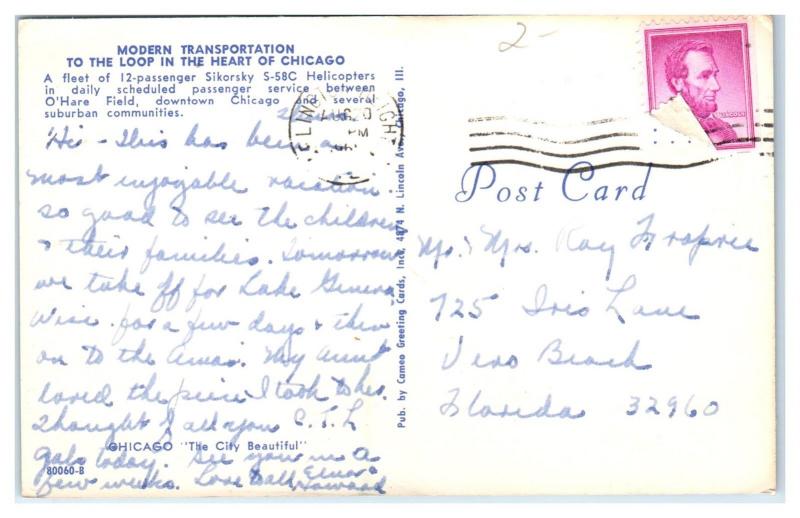 MODERN TRANSPORTATION
TO THE LOOP IN THE HEART OF CHICAGO
A fleet of 12-passenger Sikorsky S-58C Helicopters
in daily scheduled passenger service between
O'Hare Field, downtown Chicago and several
suburban communities.
Hi - This has been a
most enjoyable vacation
so good to see the children
& their families. Tomorrow
we take off for Lake Geneva
Wisc. for a few days & then
on to the
My Aunt
loved the
I took to her.
Thought of all you C.T.L
CHICAGO "The City Beautiful"
gals today. See you in a
80060-B
few weeks. Love to all
Howard
Pub. by Cameo Greeting Cards, Inc. 4874 N. Lincoln Ave., Chicago, Ill.
2-
AUG
PM
LINCOLN
Post Card
Mr. & Mrs. Ray
725 Iris Lane
Vero Beach
Florida 32960